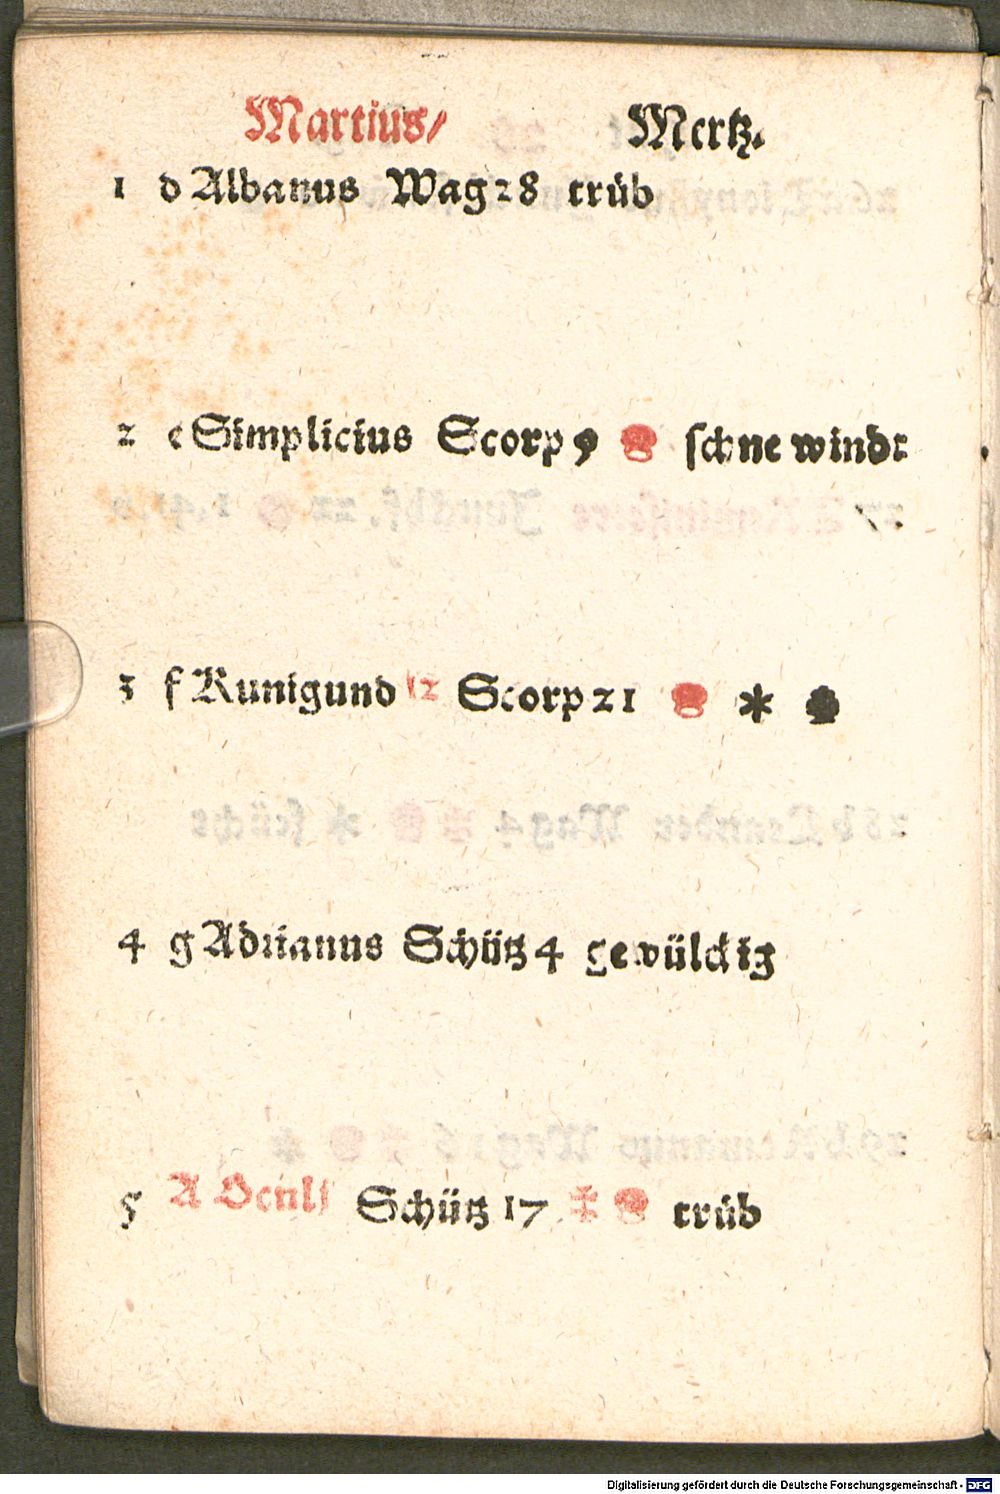 Martius/ Mertz.
1 d Albanus Wag 28 trüb
2 e Simplicius Scorp 9 schne windt
3 f Kunigund 12 Scorp 21 *
4 g Adrianus Schütz 4 gewülckig
5 A Oculi Schütz 17 trüb
Digitalisierung gefördert durch die Deutsche Forschungsgemeinschaft - DFG